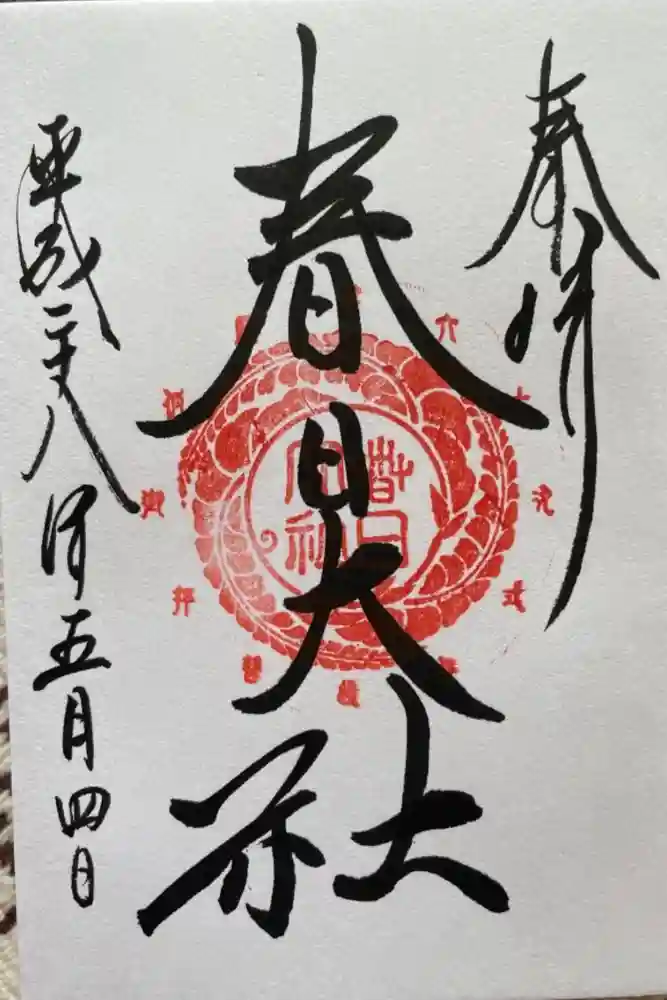 奉拝
春日大社
平成二十八年五月四日
春日大社